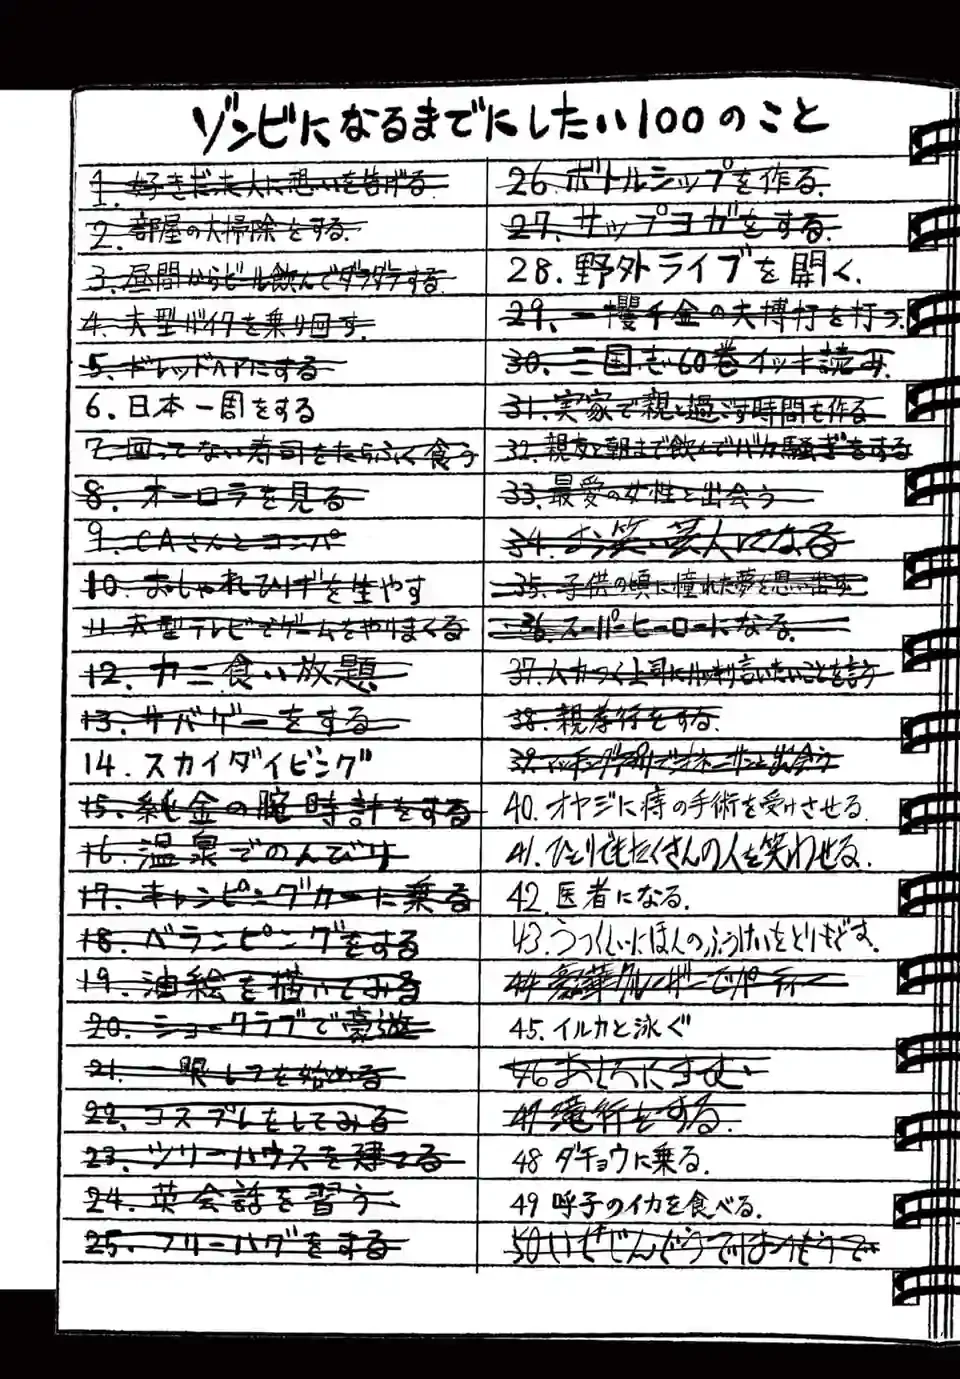 ゾンビになるまでにしたい100のこと
1. 好きだった人に想いを告げる
2. 部屋の大掃除をする.
3. 昼間からビール飲んでダラダラする
4. 大型バイクを乗り回す.
5. ドレッドヘアにする
6. 日本一周をする
7. 回ってない寿司をたらふく食う
8. オーロラを見る
9. CAさんとコンパ
10. おしゃれひげを生やす
11. 大型テレビでゲームをやりまくる
12. カニ食い放題
13. サバゲーをする
14. スカイダイビング
15. 純金の腕時計をする
16. 温泉でのんびり
17. キャンピングカーに乗る
18. ベランピングをする
19. 油絵を描いてみる
20. ショークラブで豪遊
21. 一眼レフを始める
22. コスプレをしてみる
23. ツリーハウスを建てる
24. 英会話を習う
25. フリーハグをする
26. ボトルシップを作る.
27. サップヨガをする.
28. 野外ライブを開く.
29. 一攫千金の大博打を打つ.
30. 三国志60巻イッキ読み.
31. 実家で親と過ごす時間を作る
32. 親友と朝まで飲んでバカ騒ぎをする
33. 最愛の女性と出会う
34. お笑い芸人になる
35. 子供の頃に憧れた夢を思い出す
36. スーパーヒーローになる.
37. ムカつく上司にハッキリ言いたいことを言う
38. 親孝行をする.
39. で と出会う
40. オヤジに痔の手術を受けさせる.
41. ひとりでもたくさんの人を笑わせる.
42. 医者になる.
43. うつくしいにほんのふうけいをとりもどす.
44. 豪華クルーザーでパーティー
45. イルカと泳ぐ
46 おしろにすむ
47 滝行をする.
48 ダチョウに乗る.
49 呼子のイカを食べる.
50 ぜんどうではつもうで